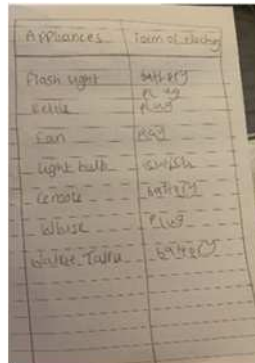 Appliances form of electricity
flash light battery
plug
kettle plug
fan plug
light bulb swish
remote battery
plug
walkie Talkie battery